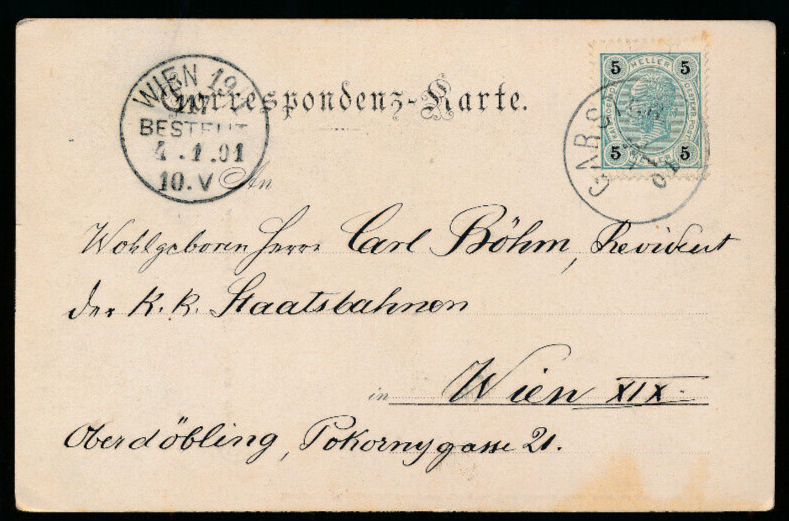 WIEN 19
117
BESTELLT
4.1.01
10.V
Correspondenz-Karte.
5 HELLER 5
5 HELLER 5
GARS
01
An
Wohlgeboren Herrn Carl Böhm, Revident
der K. K. Staatsbahnen
in Wien XIX.
Oberdöbling, Pokornygasse 21.